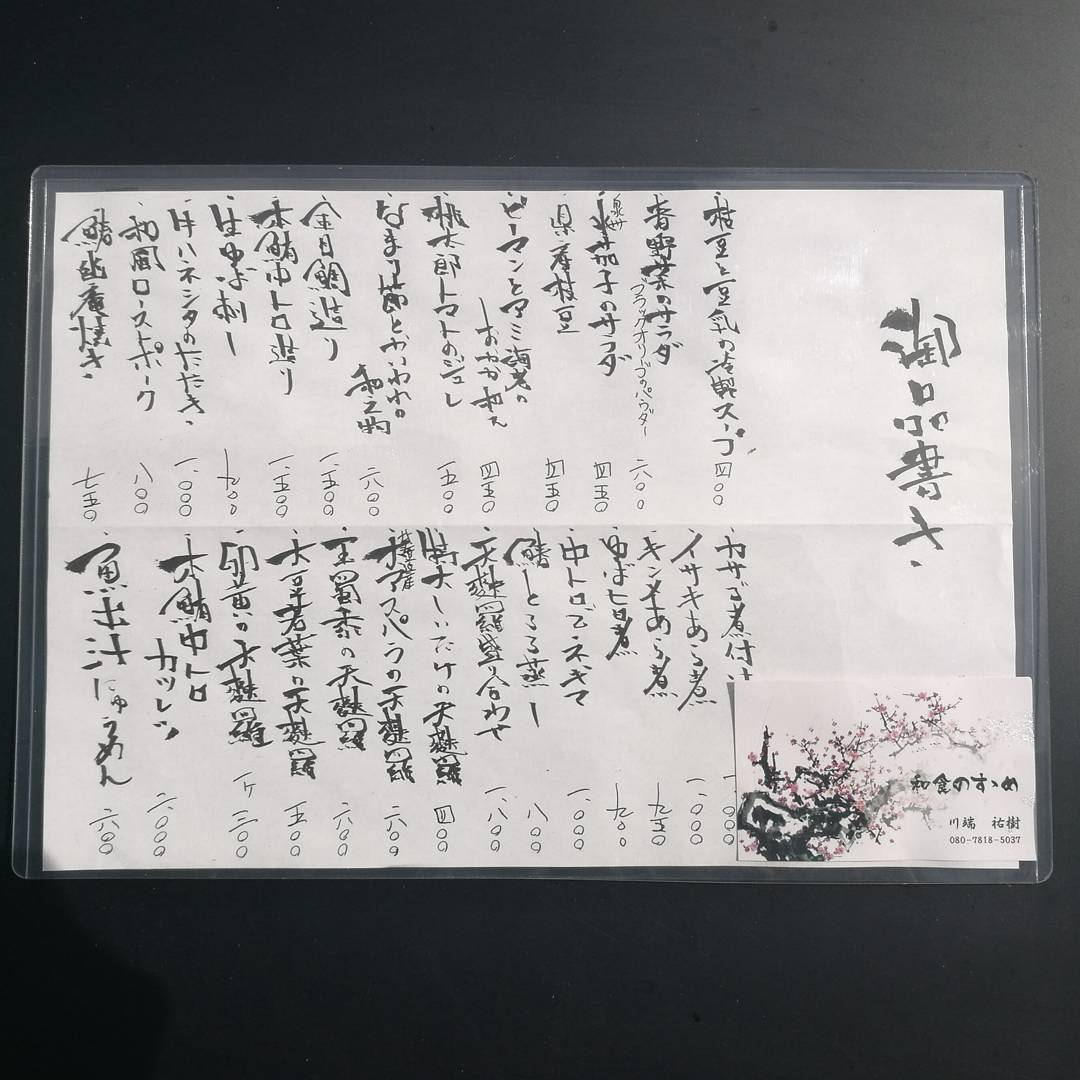 御品書き
枝豆と豆乳の冷製スープ 四〇〇
香野菜のサラダ 六〇〇
ブラックオリーブのパウダー
泉州水茄子のサラダ 四五〇
県産枝豆 四五〇
ピーマンとアミ海老の
おかか和え 四五〇
桃太郎トマトのジュレ 五〇〇
なまり節とかいわれの
和え物 六〇〇
金目鯛造り 一.五〇〇
本鮪中トロ造り 一.五〇〇
生ゆば刺し 九〇〇
牛ハネシタのたたき 一.〇〇〇
和風ローストポーク 八〇〇
鰆幽庵焼き 七五〇
カサゴ煮付け
イサキあら煮 一.〇〇〇
キンメあら煮 九五〇
ゆば旨煮 九〇〇
中トロでネギマ 一.〇〇〇
鰆とろろ蒸し 八〇〇
天麩羅盛り合わせ 一.八〇〇
特大しいたけの天麩羅 四〇〇
アスパラの天麩羅 六〇〇
玉蜀黍の天麩羅 六〇〇
大豆若葉の天麩羅 五〇〇
卵黄の天麩羅 一ケ三〇〇
本鮪中トロ
カツレツ 二.〇〇〇
魚出汁にゅうめん 六〇〇
和食のすゝめ
川端 祐樹
080-7818-5037